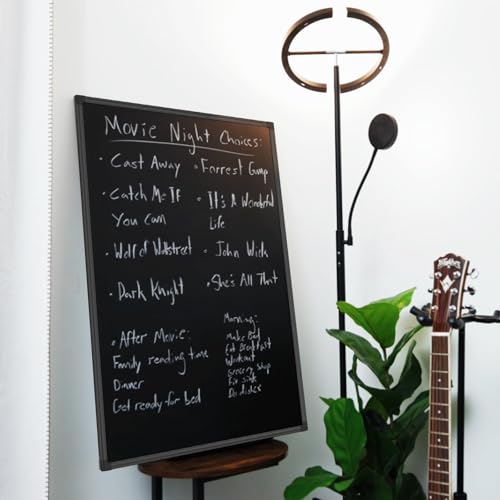 Movie Night Choices:
• Cast Away
• Forrest Gump
• Catch Me If
You Can
• It's A Wonderful
Life
• Wolf of Wallstreet
• John Wick
• Dark Knight
• She's All That
• After Movie:
Family reading time
Dinner
Get ready for bed
Morning:
Make Bed
Eat Breakfast
Workout
Grocery Shop
Fix Sink
Do dishes